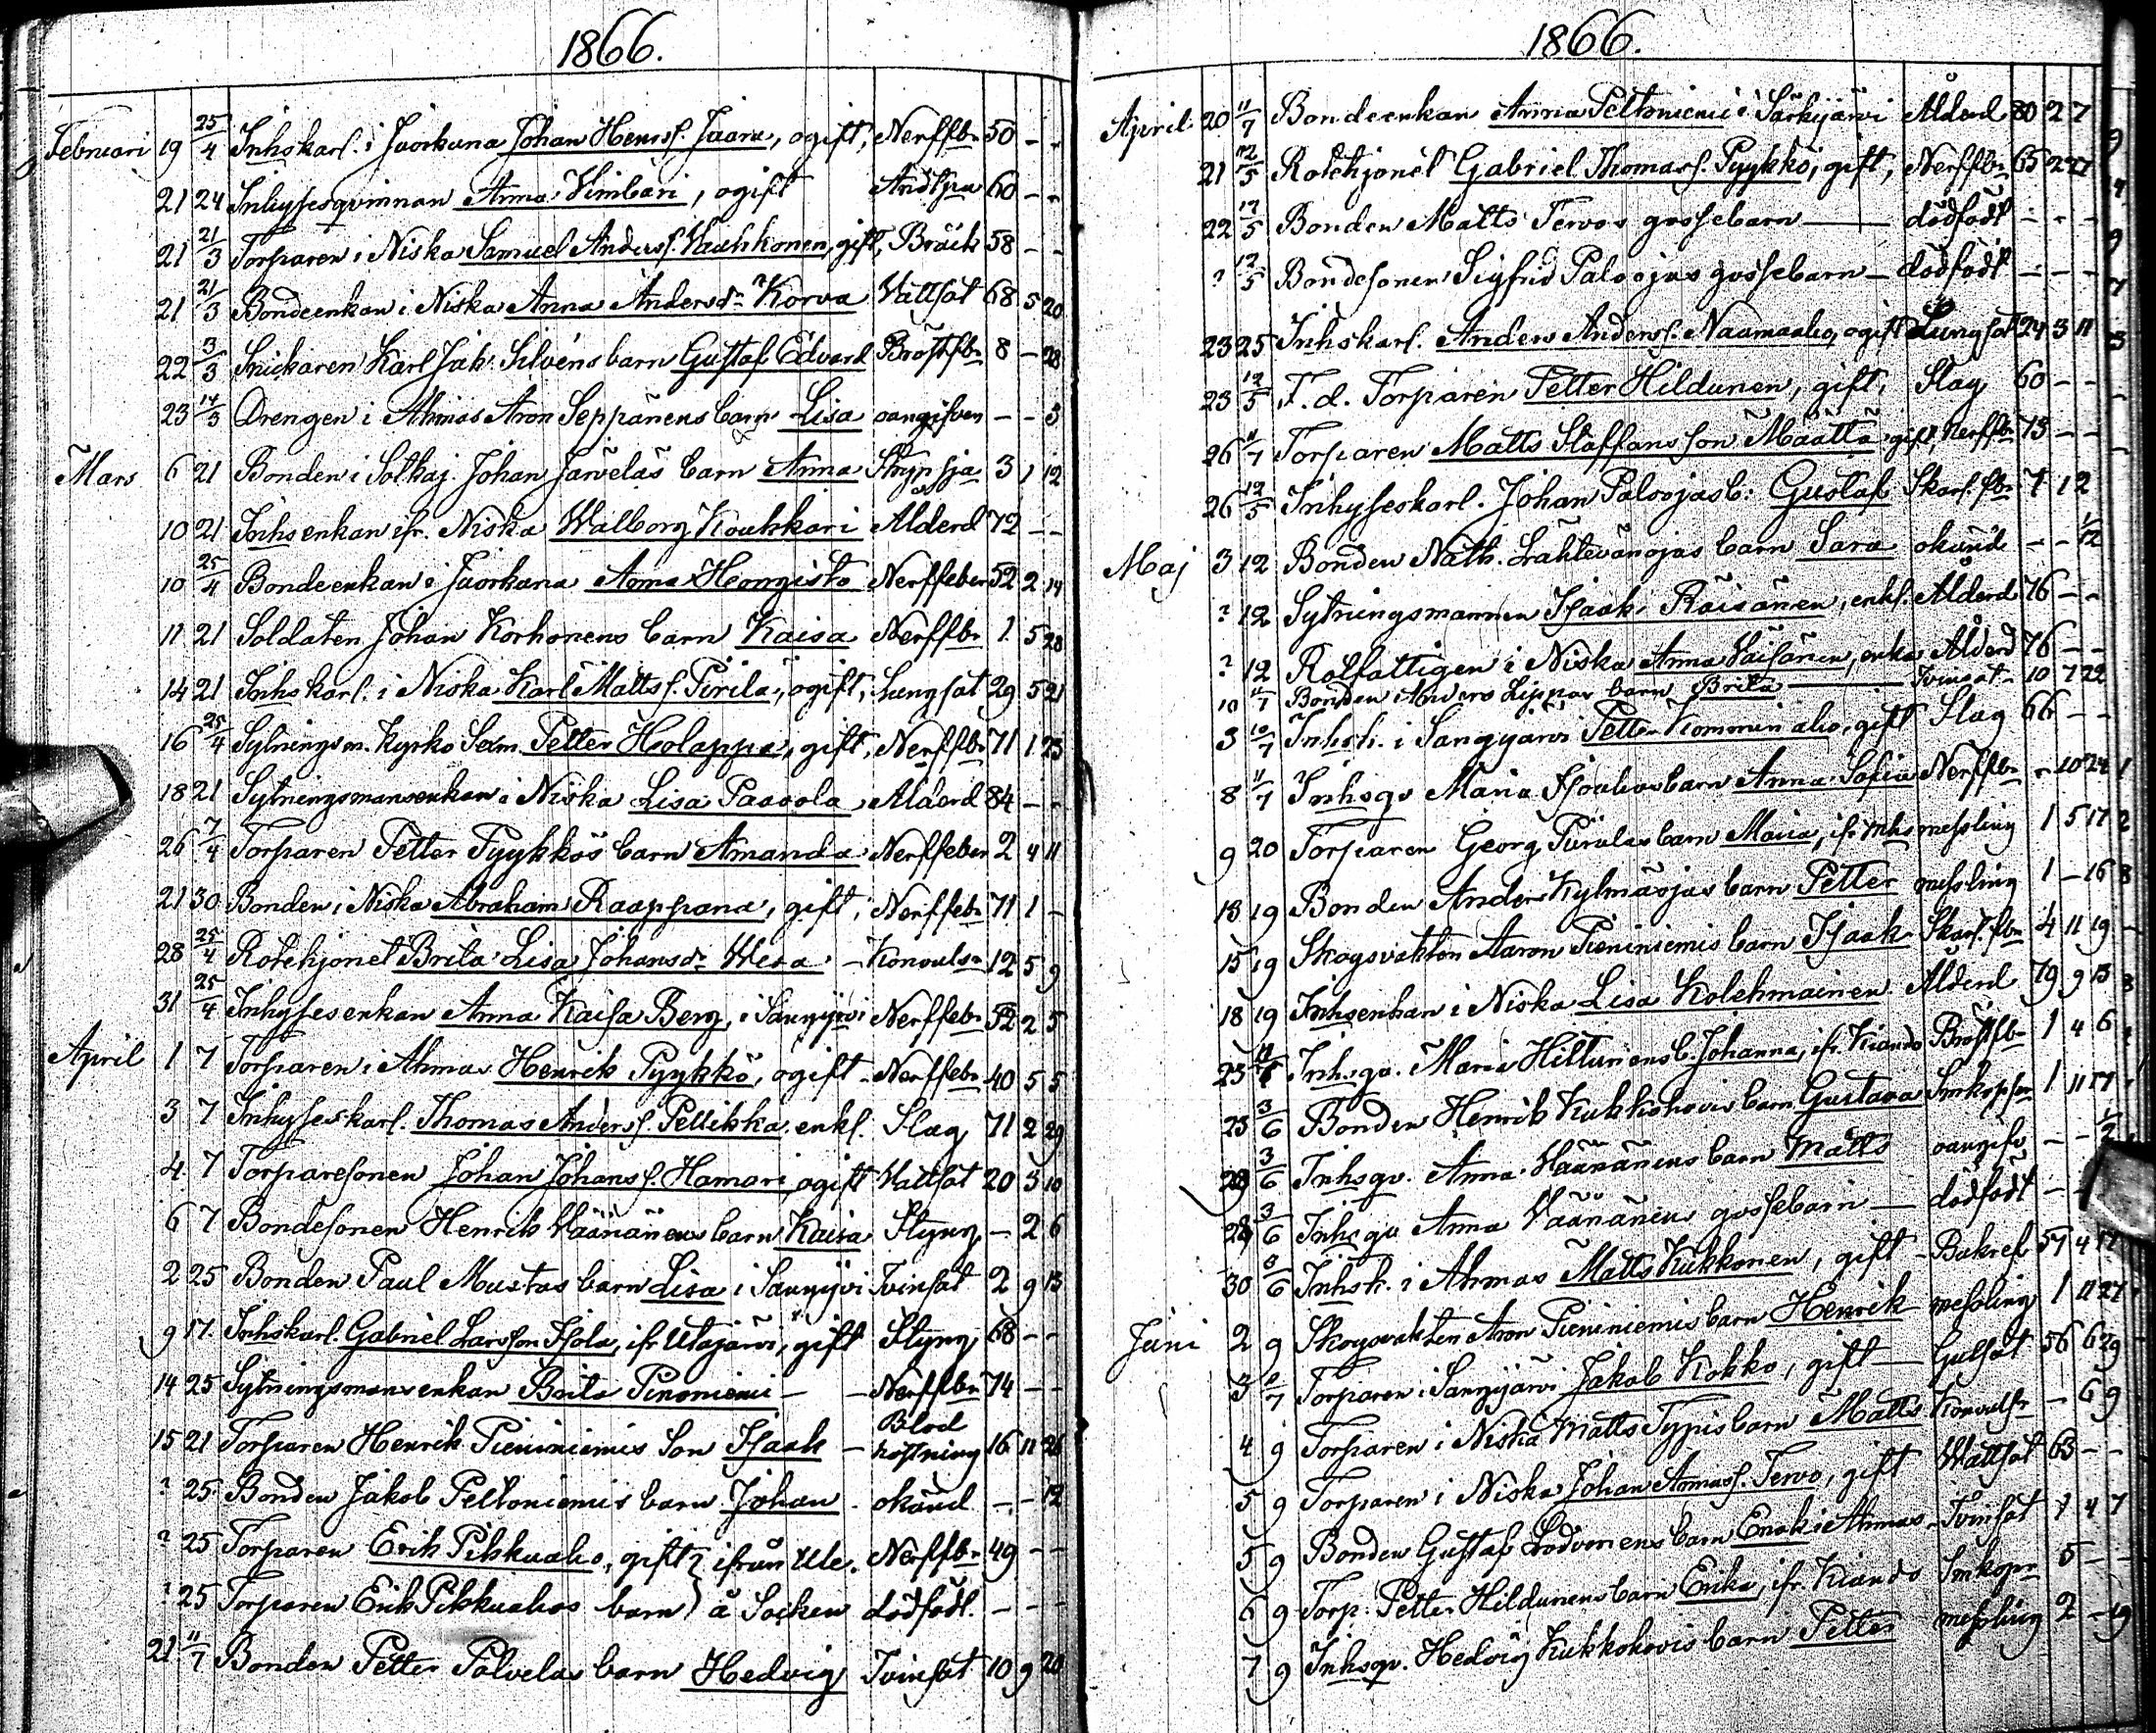 1866.
Februari 19 25/4 Inhskarl. i Juorkuna Johan Henrs. Jaara, ogift, Nerffbr 50 - -
21 24 Inhysesqvinnan Anna Kimbari, ogift Andtpa 60 - -
21 21/3 Torparen i Niska Samuel Anders. Kauhkonen, gift, Bråck 58 - -
21 21/3 Bondeenkan i Niska Anna Andersdr Korva Vattsot 68 5 20
22 3/3 Snickaren Karl Jak. Silvéns barn Gustaf Edvard Bröstfbr 8 - 28
23 14/3 Drengen i Ahmas Aron Seppänens barn Lisa oangifven - - 3
Mars 6 21 Bonden i Sotkaj. Johan Järveläs barn Anna Stryp sja 3 1 12
10 21 Inhsenkan ifr. Niska Walborg Koukkari Ålderd 72 - -
10 25/4 Bondeenkan i Juorkuna Anna Hongisto Nerffeber 52 2 14
11 21 Soldaten Johan Korhonens barn Kaisa Nerffbr 1 5 28
14 21 Inhskarl. i Niska Karl Matts s. Pirilä, ogift, Lungsot 29 5 21
16 25/4 Sytningsm. Kyrko Sexm. Petter Holappa, gift, Nerffbr 71 1 23
18 21 Sytningsmansenkan i Niska Lisa Paavola Ålderd 84 - -
26 7/4 Torparen Petter Pyykkös barn Amanda Nerffeber 2 4 11
21 30 Bonden i Niska Abraham Raappana, gift, Nerffebr 71 1 -
28 25/4 Rotehjonet Brita Lisa Johansdr Wesa - Konvulsr 12 5 9
31 25/4 Inhysesenkan Anna Kaisa Berg, i Sanginjvi Nerffebr 52 2 5
April 1 7 Torparen i Ahmas Henrik Pyykkö, ogift - Nerffebr 40 5 5
3 7 Inhyseskarl. Thomas Anders. Pellikka. enkl. Slag 71 2 29
4 7 Torparesonen Johan Johans s. Hamari, ogift Vattsot 20 3 10
6 7 Bondesonen Henrik Väänänens barn Kaisa Styng - 2 6
2 25 Bonden Paul Mustas barn Lisa i Sanginjvi Tvinsot 2 9 13
9 17. Inhskarl. Gabriel Larsson Isola, ifr Utajärvi, gift Styng 68 - -
14 25 Sytningsmansenkan Brita Pinoniemi - - Nerffbr 74 - -
15 21 Torparen Henrik Pieniniemis Son Isaak - Blod hostning 16 11 26
? 25 Bonden Jakob Peltoniemis barn Johan - okänd - - 12
? 25 Torparen Erik Pikkuaho, gift } ifrån Ule. Nerffbr 49 - -
? 25 Torparen Erik Pikkuahos barn } å Socken dödfödt. - - -
21 11/7 Bonden Petter Polvelas barn Hedvig Tvinsot 10 9 20
1866.
April 20 11/7 Bondeenkan Anna Peltoniemi i Särkijärvi Ålderd 80 2 7
21 12/5 Rotehjonet Gabriel Thomas s. Pyykkö, gift, Nerffbr 65 2 27
22 12/5 Bonden Matts Tervos gossebarn dödfödt - - -
? 12/5 Bondesonen Sigfrid Paloojas gossebarn - dödfödt - - -
23 25 Inhskarl. Anders Anders s. Naamaaho, ogift Lungsot 24 3 11
23 12/5 F. d. Torparen Petter Hildunen, gift, Slag 60 - -
26 11/7 Torparen Matts Staffansson Määttä gift, Nerffbr 73 - -
26 12/5 Inhyseskarl. Johan Paloojas b. Gustaf Skarl. fbr 7 1 2
Maj 3 12 Bonden Nath. Lahtevänojas barn Sara okänd - - 1/12
? 12 Sytningsmannen Isaak Räisänen, enkl. Ålderd 76 - -
? 12 Rotfattigen i Niska Anna Väisänen, enka Ålderd 76 - -
10 11/7 Bonden Anders Lippos barn Brita Tvinsot - 10 7 22
3 10/7 Inhsk. i Sanginjärvi Petter Komminaho, gift Slag 66 - -
8 11/7 Inhsqv Maria Isoahos barn Anna Sofia Nerffbr - 10 24
9 20 Torparen Georg Piirolas barn Maria, ifr Mhs messling 1 5 17
13 19 Bonden Anders Kylmäojas barn Petter messling 1 - 16
15 19 Skogsvakten Aaron Pieniniemis barn Isaak Skarl. fbr 4 11 19
18 19 Inhsenkan i Niska Lisa Kolehmainen Ålderd 79 9 13
23 Inhsqv. Maria Hiltunens b. Johanna, ifr. Kiando Bröstfbr 1 4 6
23 3/6 Bonden Henrik Kukkohovis barn Gustava Smkopor 1 11 17
28 3/6 Inhsqv. Anna Väänänens barn Matts oangifv - - 1/2
28 3/6 Inhsqv Anna Väänänens gossebarn - dödfödt - -
30 8/6 Inhsk. i Ahmas Matts Kukkonen, gift - Bukref 57 4 17
Juni 2 9 Skogsvakten Aron Pieniniemis barn Henrik messling 1 11 27
3 10/7 Torparen i Sanginjärvi Jakob Kokko, gift - Gulsot 56 6 29
4 9 Torparen i Niska Matts Typis barn Matts Konvulsr - 6 9
5 9 Torparen i Niska Johan Thomas s. Tervo, gift Wattsot 63 - -
5 9 Bonden Gustaf barn Enok i Ahmas - Tvinsot 1 4 7
6 9 Torp. Petter Hildunens barn Erika, ifr. Kiando Smkopr 5 - -
7 9 Inhsqv. Hedvig Kukkohovis barn Petter messling 2 - 19